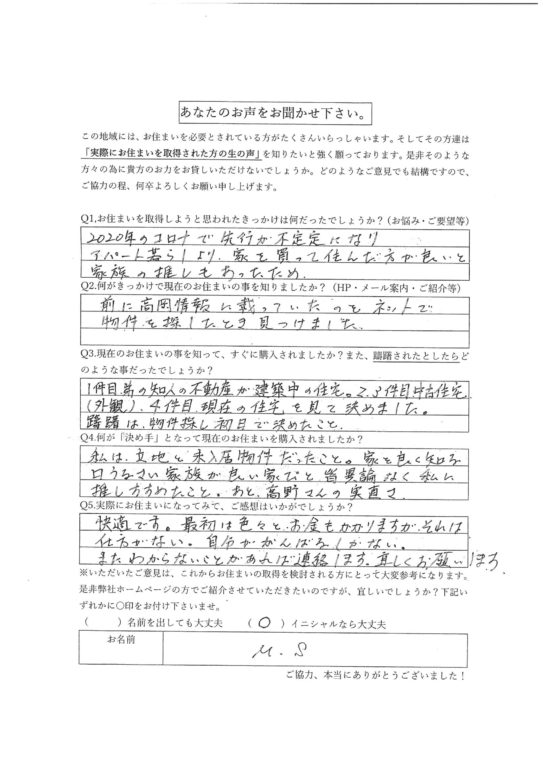 あなたのお声をお聞かせ下さい。
この地域には、お住まいを必要とされている方がたくさんいらっしゃいます。そしてその方達は
「実際にお住まいを取得された方の生の声」を知りたいと強く願っております。是非そのような
方々の為に貴方のお力をお貸しいただけないでしょうか。どのようなご意見でも結構ですので、
ご協力の程、何卒よろしくお願い申し上げます。
Q1,お住まいを取得しようと思われたきっかけは何だったでしょうか?（お悩み・ご要望等）
2020年のコロナで先行が不定定になり
アパート暮らしより、家を買って住んだ方が良いと
家族の推しもあったため.
Q2.何がきっかけで現在のお住まいの事を知りましたか?（HP・メール案内・ご紹介等）
前に高岡情報に載っていたのをネットで
物件を探したとき見つけました.
Q3.現在のお住まいの事を知って、すぐに購入されましたか?また、躊躇されたとしたらど
のような事だったでしょうか?
1件目弟の知人の不動産が建築中の住宅。2.3件目中古住宅
(外観). 4件目.現在の住宅を見て決めました。
躊躇は、物件探し初日で決めたこと.
Q4.何が「決め手」となって現在のお住まいを購入されましたか?
私は、立地と未入居物件だったこと。家を良く知る
口うるさい家族が良い家だと皆異論なく私に
推しすすめたこと。あと、高野さんの実直さ.
Q5.実際にお住まいになってみて、ご感想はいかがでしょうか?
快適です。最初は色々とお金もかかりますが、それは
仕方がない。自分ががんばるしかない。
またわからないことがあれば連絡します。宜しくお願いします.
※いただいたご意見は、これからお住まいの取得を検討される方にとって大変参考になります。
是非弊社ホームページの方でご紹介させていただきたいのですが、宜しいでしょうか?下記い
ずれかに〇印をお付け下さいませ。
（　　）名前を出しても大丈夫　（ 〇 ）イニシャルなら大丈夫
お名前　M.S
ご協力、本当にありがとうございました!